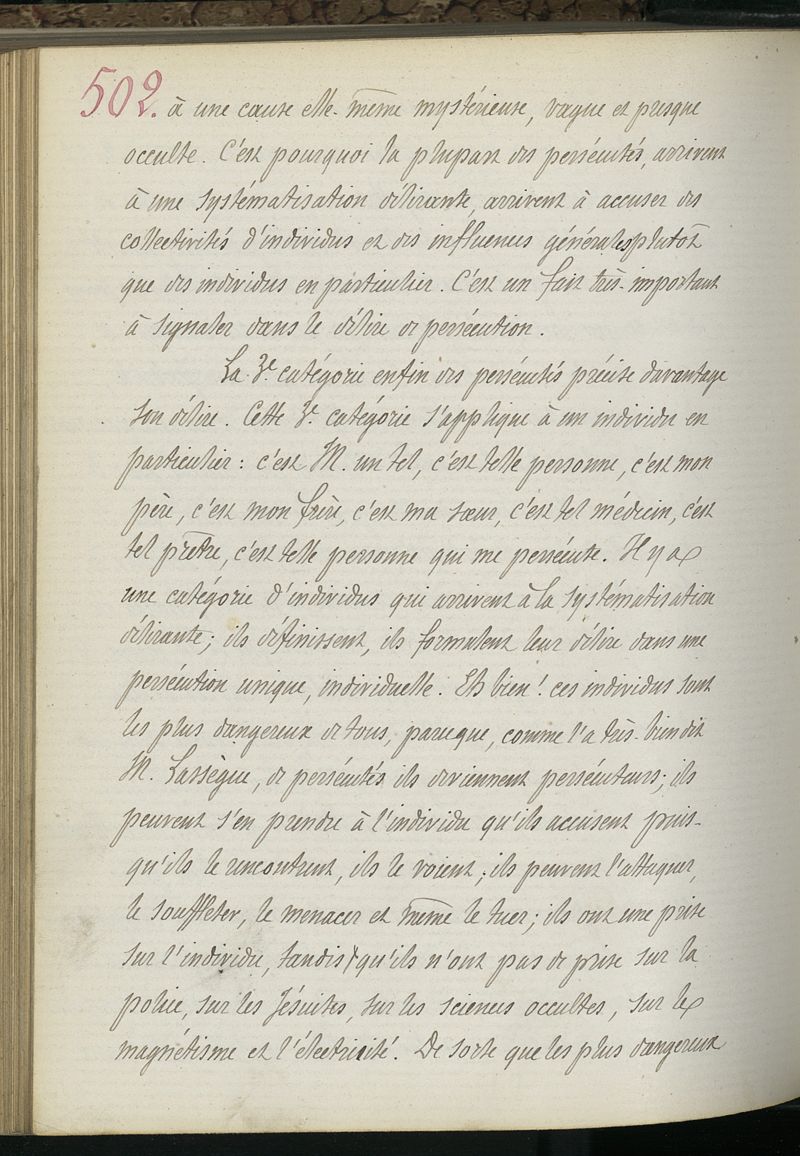 502. à une cause elle-même mystérieuse, vague et presque
occulte. C'est pourquoi la plupart des persécutés, arrivent
à une systématisation délirante, arrivent à accuser des
collectivités d'individus et des influences générales plutôt
que des individus en particulier. C'est un fait très-important
à signaler dans le délire de persécution.
La 3e catégorie enfin des persécutés précise davantage
son délire. Cette 3e catégorie s'applique à un individu en
particulier : c'est M. un tel, c'est telle personne, c'est mon
père, c'est mon frère, c'est ma sœur, c'est tel médecin, c'est
tel prêtre, c'est telle personne qui me persécute. Il y a
une catégorie d'individus qui arrivent à la systématisation
délirante; ils définissent, ils formulent leur délire dans une
persécution unique, individuelle. Eh bien ! ces individus sont
les plus dangereux de tous, parceque, comme l'a très-bien dit
M. Lassègue, de persécutés ils deviennent persécuteurs; ils
peuvent s'en prendre à l'individu qu'ils accusent puis-
qu'ils le rencontrent, ils le voient; ils peuvent l'attaquer,
le souffleter, le menacer et même le tuer; ils ont une prise
sur l'individu, tandis qu'ils n'ont pas de prise sur la
police, sur les Jésuites, sur les sciences occultes, sur le
magnétisme et l'électricité. De sorte que les plus dangereux